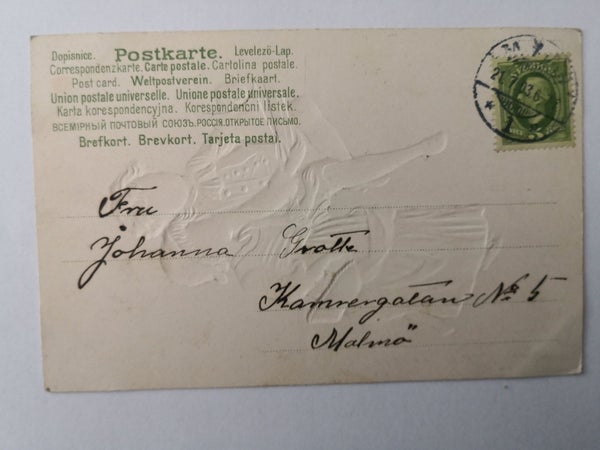 Dopisnice. Postkarte. Levelező-Lap.
Correspondenzkarte. Carte postale. Cartolina postale.
Post card. Weltpostverein. Briefkaart.
Union postale universelle. Unione postale universale.
Karta korespondencyjna. Korespondenčni listek.
ВСЕМІРНЫЙ ПОЧТОВЫЙ СОЮЗЪ. РОССІЯ. ОТКРЫТОЕ ПИСЬМО.
Brefkort. Brevkort. Tarjeta postal.
Fru
Johanna Grotte
Kamrergatan No 5
Malmö